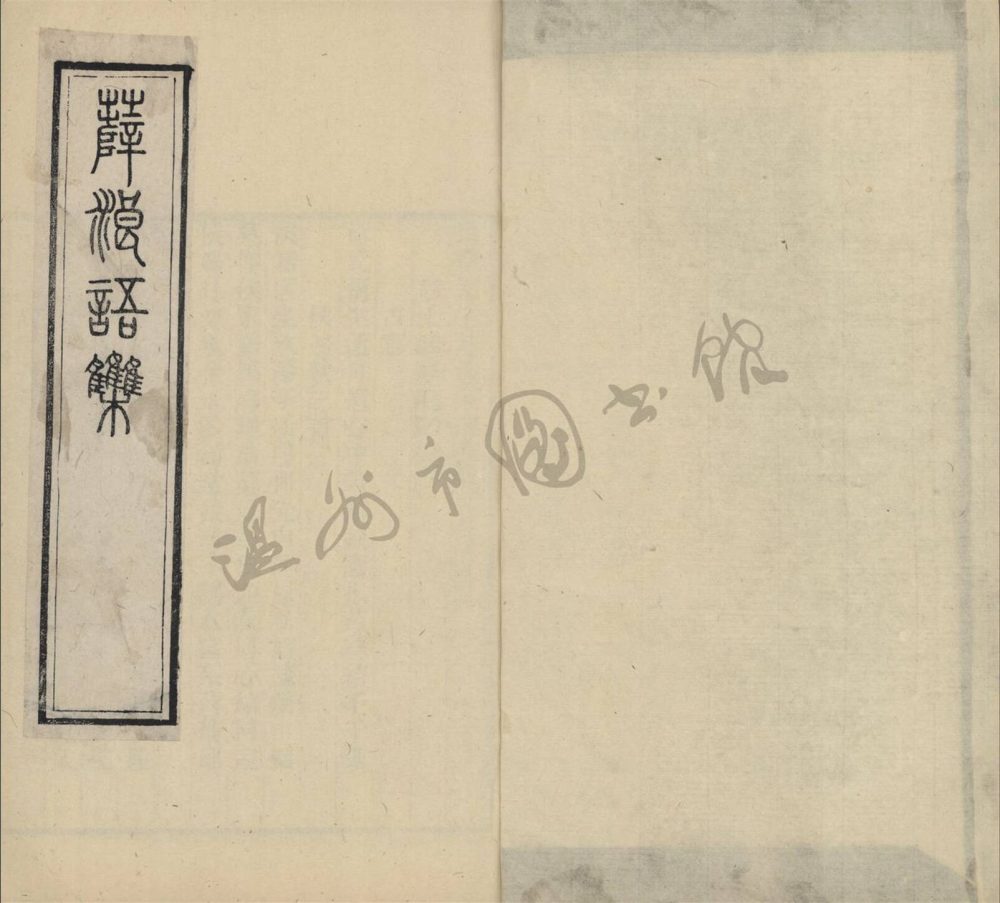 薛浪語集
温州市圖书館